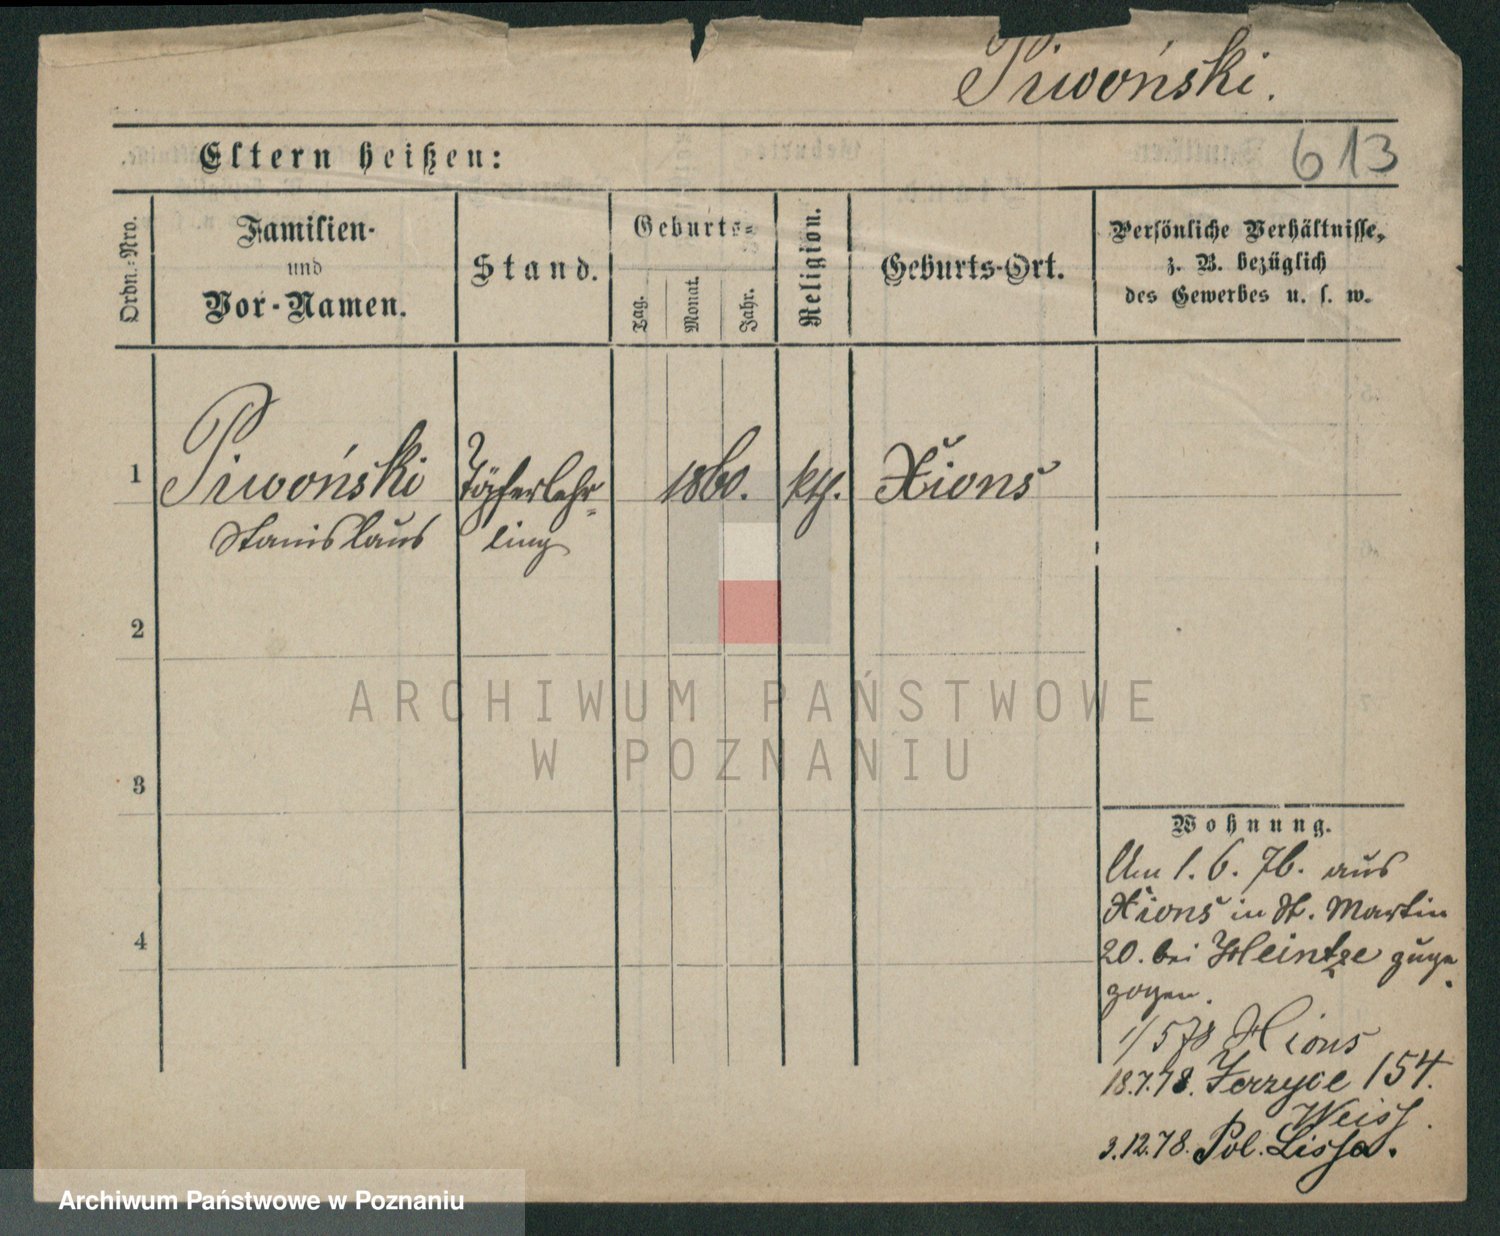 Piwoński.
613
Eltern heißen:
Ordn.-Nro.
Familien-
und
Vor-Namen.
Stand.
Geburts-
Tag.
Monat.
Jahr.
Religion.
Geburts-Ort.
Persönliche Verhältnisse,
z. B. bezüglich
des Gewerbes u. s. w.
1
Piwoński
Stanislaus
Töpferlehr-
ling
1860.
kth.
Xions
2
3
4
ARCHIWUM PAŃSTWOWE
W POZNANIU
Wohnung.
Am 1. 6. 76. aus
Xions in St. Martin
20. bei Heintze zuge
zogen.
1/5 78 Xions
18.7.78. Jerzyce 154.
Weiss.
3.12.78. Pol. Lissa.
Archiwum Państwowe w Poznaniu